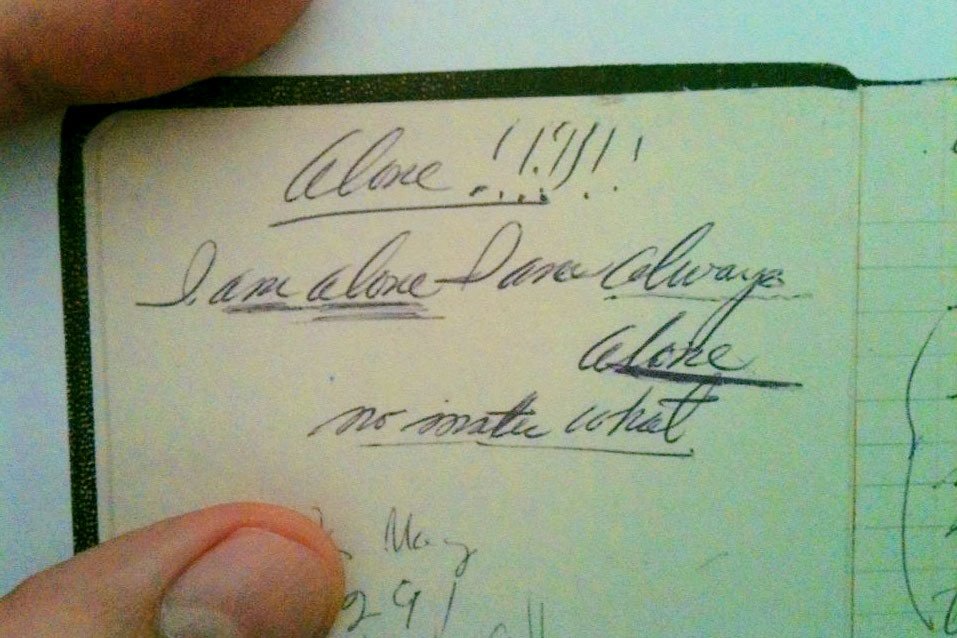 Alone !!!!!!
I am alone I am always
alone
no matter what
May
29